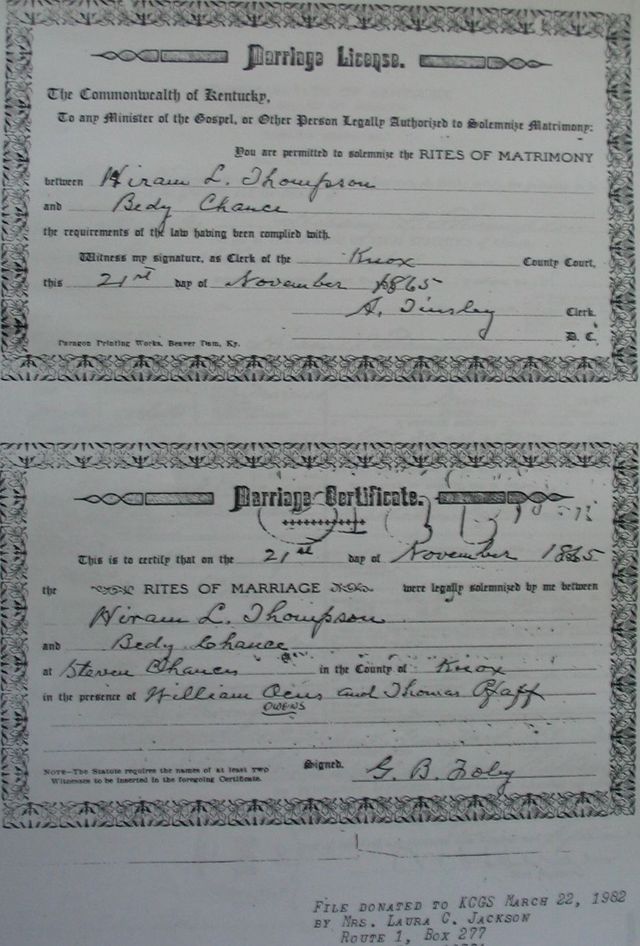 Marriage License.
The Commonwealth of Kentucky,
To any Minister of the Gospel, or Other Person Legally Authorized to Solemnize Matrimony:
You are permitted to solemnize the RITES OF MATRIMONY
between Hiram L. Thompson
and Bedy Chance
the requirements of the law having been complied with.
Witness my signature, as Clerk of the Knox County Court,
this 21st day of November 1865
A. Tinsley Clerk.
D. C.
Paragon Printing Works, Beaver Dam, Ky.
Marriage Certificate.
This is to certify that on the 21st day of November 1865
the RITES OF MARRIAGE were legally solemnized by me between
Hiram L. Thompson
and Bedy Chance
at Steven Chances in the County of Knox
in the presence of William Oens and Thomas Pfaff
OWENS
NOTE—The Statute requires the names of at least TWO
Witnesses to be inserted in the foregoing Certificate.
Signed. G. B. Foley
FILE DONATED TO KCGS MARCH 22, 1982
BY MRS. LAURA C. JACKSON
ROUTE 1, BOX 277